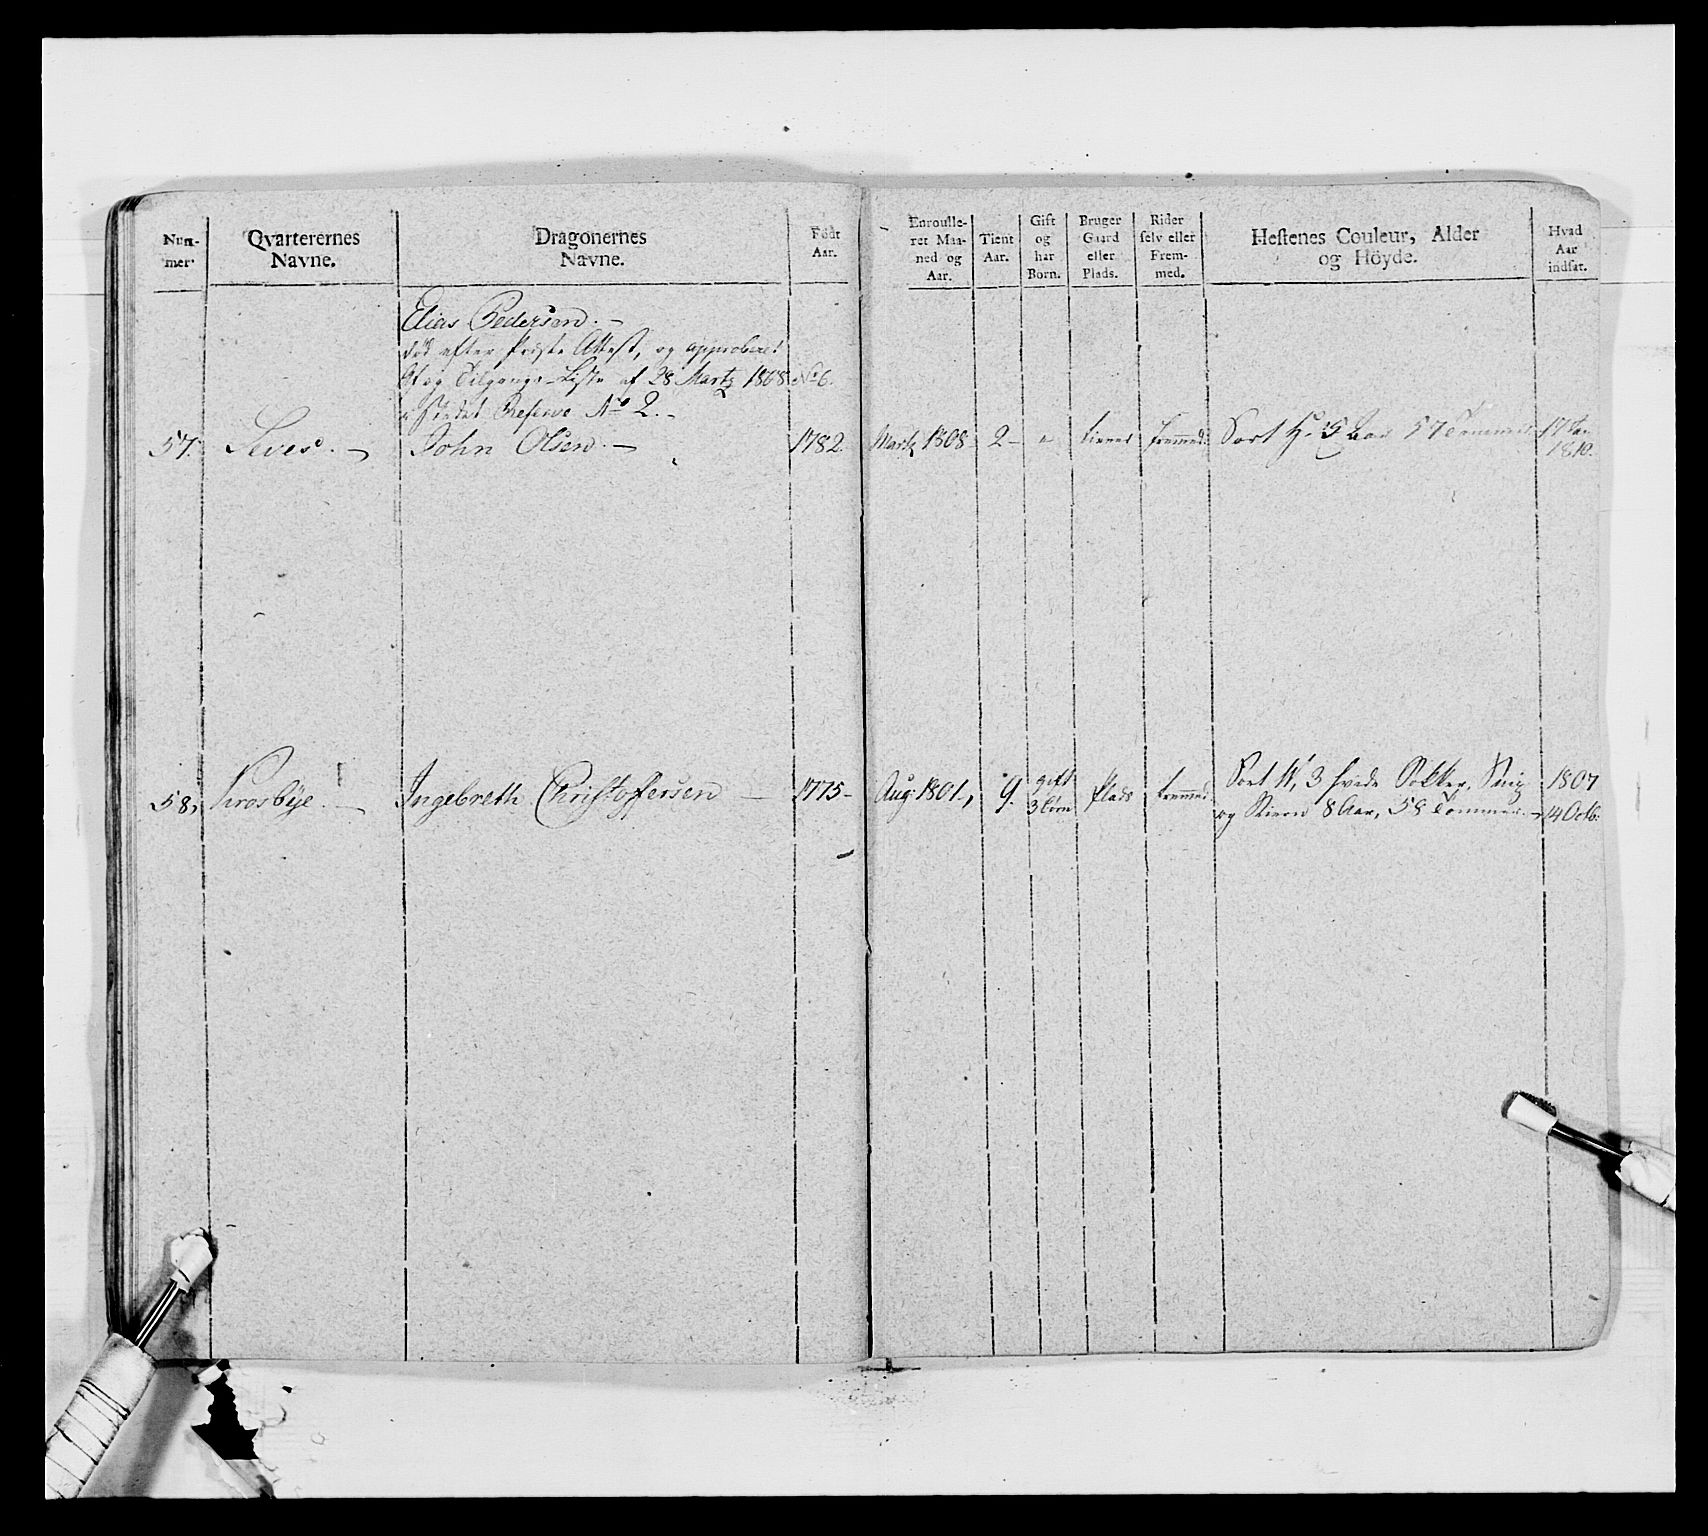 Num-
mer.
Qvarterernes
Navne.
Dragonernes
Navne.
Födt
Aar.
Enroulle-
ret Maa-
ned og
Aar.
Tient
Aar.
Gift
og
har
Börn.
Bruger
Gaard
eller
Plads.
Rider
selv eller
Frem-
med.
Hestenes Couleur, Alder
og Höyde.
Hvad
Aar
indsat.
Elias Pedersen. -
død efter Attest, og approberet
Af og Tilgangs-Liste af 28 Martz 1808 No 6.
Reserve No 2. -
57. John Olsen. - 1782. Martz 1808 2 - tiener fremmed. Sort H. 5 Aar 57 Tommer. 17 Jan
1810.
58, Krosbye. - Ingebreth Christoffersen - 1775 - Aug: 1801, 9. gift Plads fremmed Sort 3 hvide Sokker, 1807
3 börn og Stiern 8 Aar, 58 Tommer. - 14 Octb: